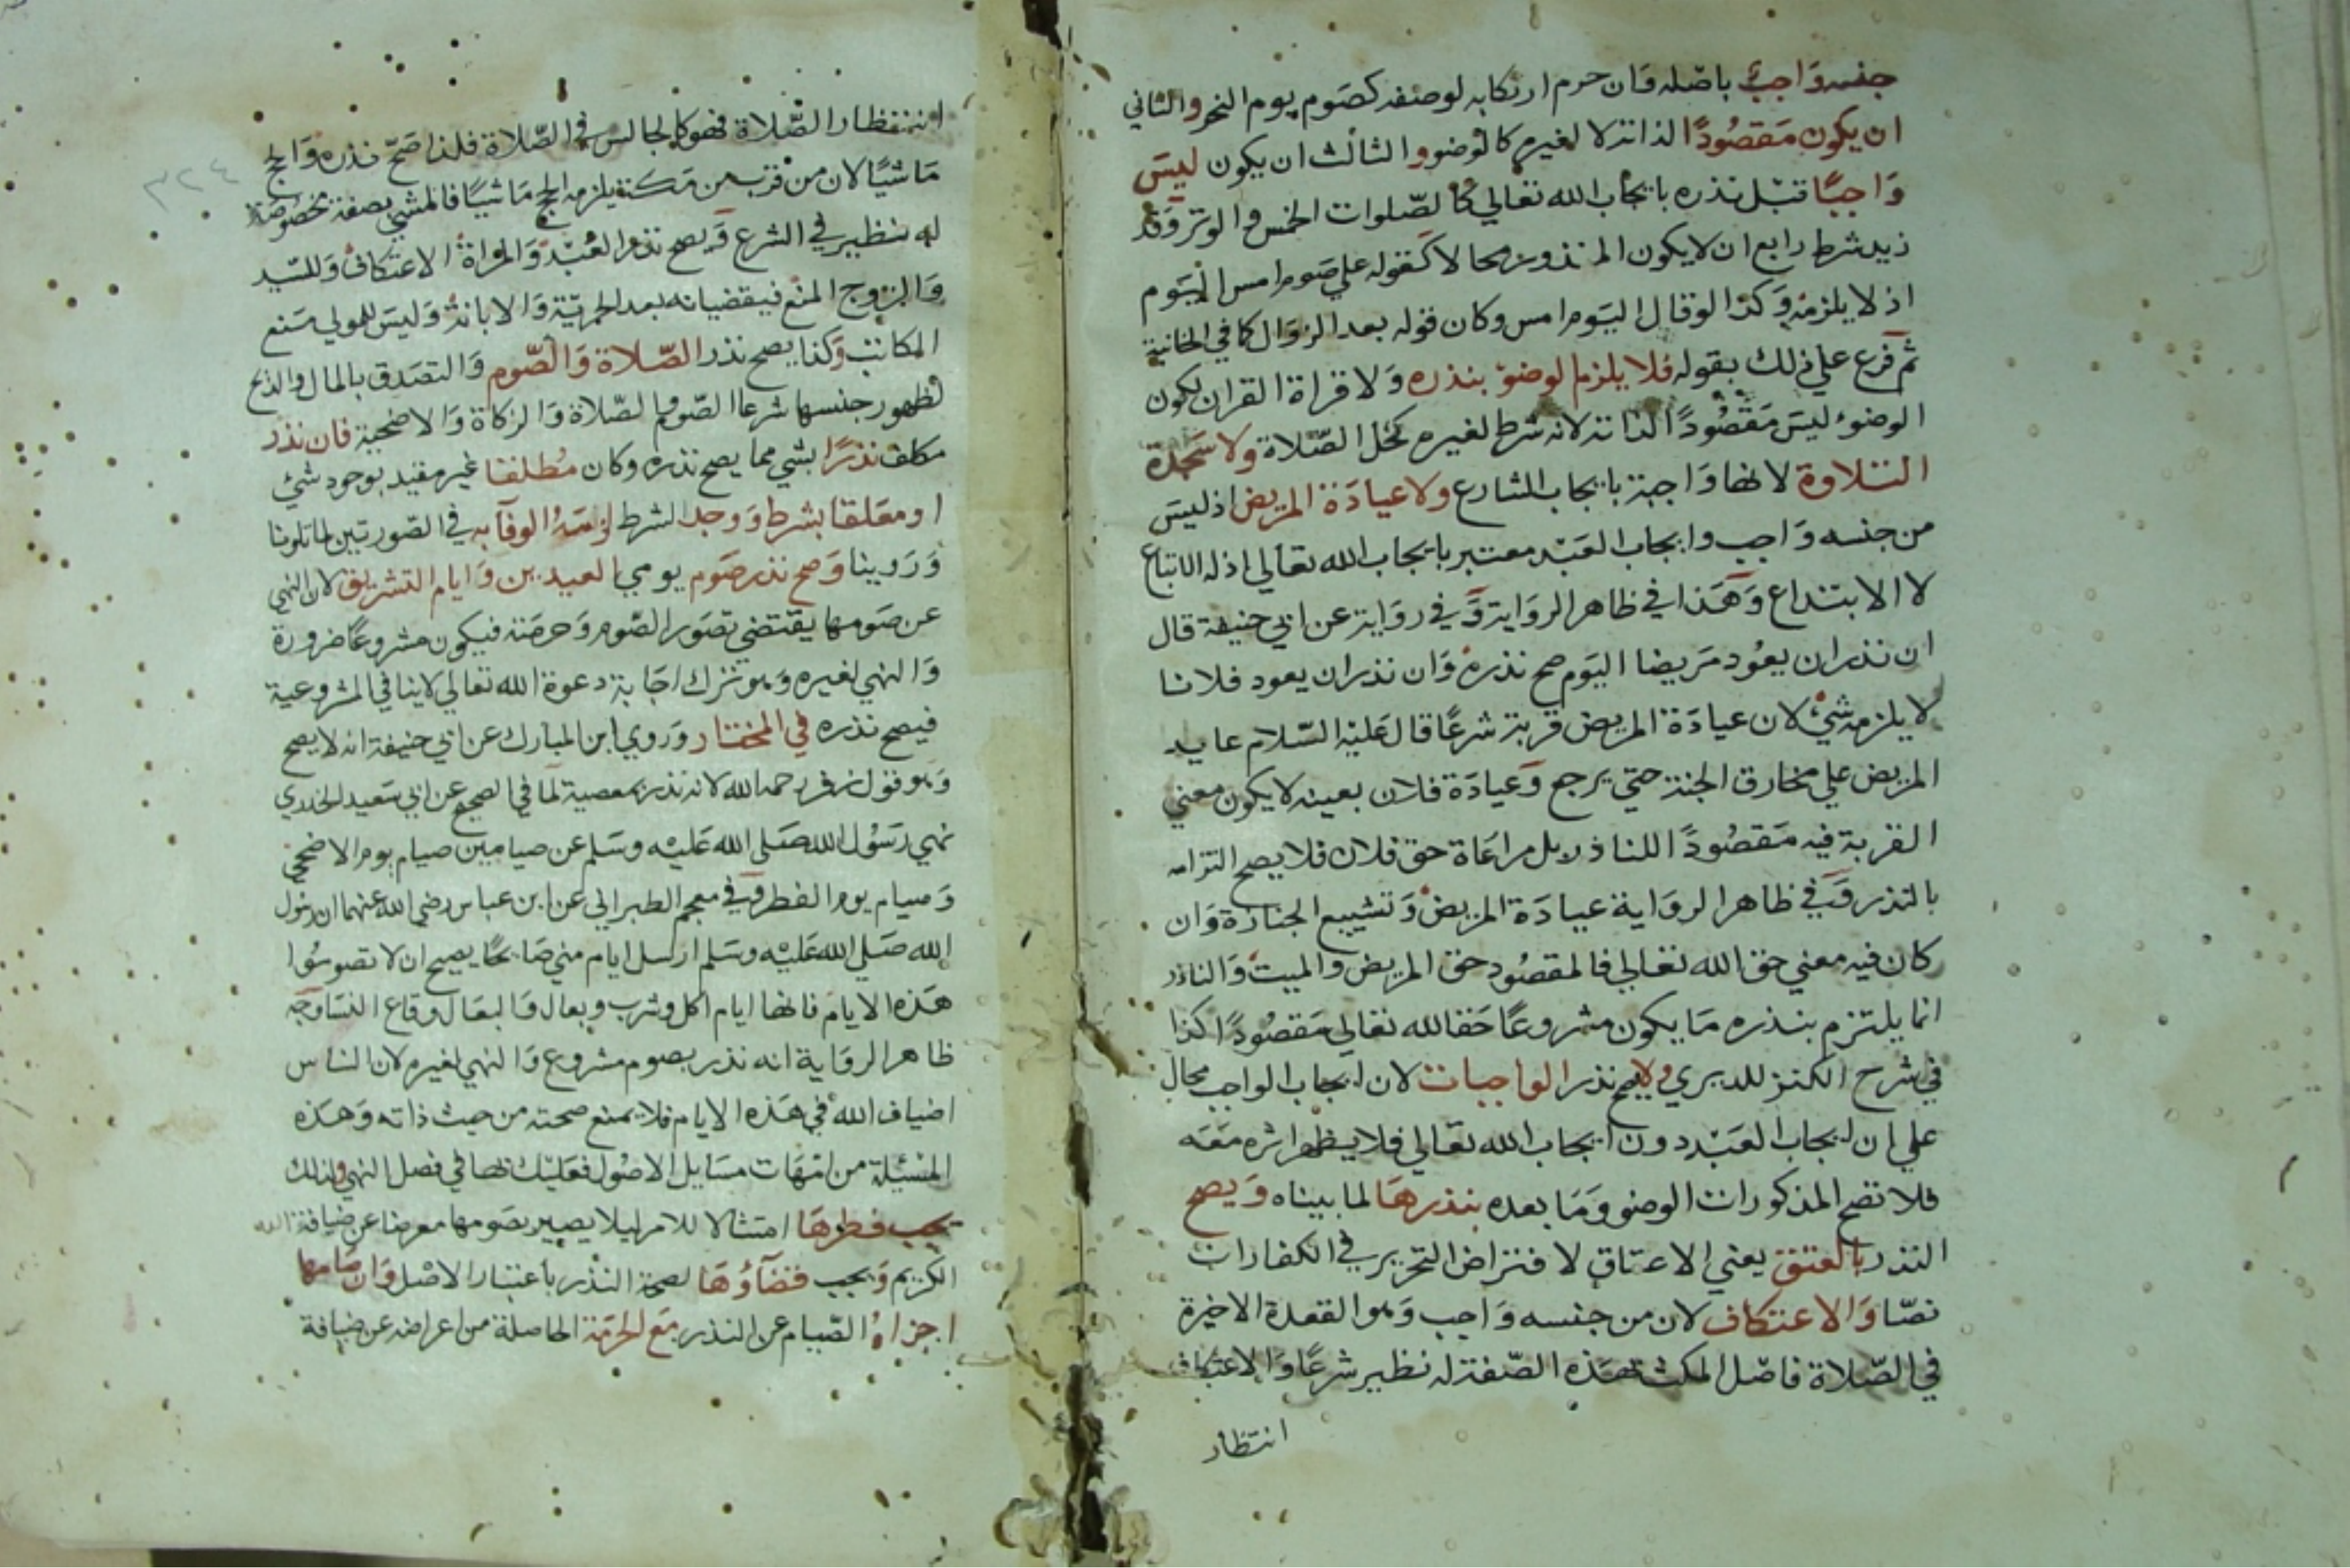 جنسه واجب باصله وان حرم ارتكابه لوصفه كصوم يوم النحر والثاني
ان يكون مقصودا لذاته لا لغيره كالوضوو الثالث ان يكون ليس
واجبا قبل نذره بايجاب الله تعالي كالصلوات الخمس والوتر وقد
زيد شرط رابع ان لا يكون المنذور محالا كقوله علي صوم امس اليوم
اذ لا يلزمه وكذا لو قال اليوم امس وكان قوله بعد الزوال كما في الخانية
ثم فرع علي ذلك بقوله فلا يلزم الوضوء بنذره ولا قراة القران لكون
الوضوء ليس مقصودا لذاته لانه شرط لغيره كحل الصلاة ولا سجدة
التلاوة لانها واجبة بايجاب الشارع ولا عيادة المريض اذ ليس
من جنسه واجب وايجاب العبد معتبر بايجاب الله تعالي اذ له الاتباع
لا الابتداع وهذا في ظاهر الرواية وفي رواية عن ابي حنيفة قال
ان نذر ان يعود مريضا اليوم صح نذره وان نذر ان يعود فلانا
لا يلزمه شيء لان عيادة المريض قربة شرعا قال عليه السلام عايد
المريض علي مخارف الجنة حتي يرجع وعيادة فلان بعينه لا يكون معني
القربة فيه مقصودا للناذر بل مراعاة حق فلان فلا يصح التزامه
بالنذر وفي ظاهر الرواية عيادة المريض وتشييع الجنازة وان
كان فيه معني حق الله تعالي فالمقصود حق المريض والميت والناذر
انما يلتزم بنذره ما يكون مشروعا حقا لله تعالي مقصودا كذا
في شرح الكنز للديري ولا يصح نذر الواجبات لان ايجاب الواجب محال
علي ان ايجاب العبد دون ايجاب الله تعالي فلا يظهر اثره معه
فلا تصح المذكورات الوضو وما بعده بنذرها لما بيناه ويصح
النذر بالعتق يعني الاعتاق لافتراض التحرير في الكفارات
نصا والاعتكاف لان من جنسه واجب وهو القعدة الاخيرة
في الصلاة فاصل المكث بهذه الصفة له نظير شرعا والاعتكاف
انتظار
٣٢٤
انتظار الصلاة فهو كالجالس في الصلاة فلذا صح نذره والحج
ماشيا لان من قرب من مكة يلزمه الحج ماشيا فالمشي بصفة مخصوصة
له نظير في الشرع ويصح نذر العبد والمراة الاعتكاف وللسيد
والزوج المنع فيقضيانه بعد الحرية والابانة وليس للمولي منع
المكاتب وكذا يصح نذر الصلاة والصوم والتصدق بالمال والذبح
لظهور جنسها شرعا الصوم الصلاة والزكاة والاضحية فان نذر
مكلف نذرا بشي مما يصح نذره وكان مطلقا غير مقيد بوجود شيء
او معلقا بشرط ووجد الشرط لزمه الوفاء به في الصورتين لما تلونا
وروينا وصح نذر صوم يومي العيدين وايام التشريق لان النهي
عن صومها يقتضي تصور الصوم وحرمته فيكون مشروعا ضرورة
والنهي لغيره وهو ترك اجابة دعوة الله تعالي لا ينافي المشروعية
فيصح نذره في المختار وروي ابن المبارك عن ابي حنيفة انه لا يصح
وهو قول زفر رحمه الله لانه نذر بمعصية لما في الصحيح عن ابي سعيد الخدري
نهي رسول الله صلي الله عليه وسلم عن صيامين صيام يوم الاضحي
وصيام يوم الفطر وفي معجم الطبراني عن ابن عباس رضي الله عنهما ان رسول
الله صلي الله عليه وسلم ارسل ايام مني صايحا يصيح ان لا تصوموا
هذه الايام فانها ايام اكل وشرب وبعال والبعال وقاع النسا وجه
ظاهر الرواية انه نذر بصوم مشروع والنهي لغيره لان الناس
اضياف الله في هذه الايام فلا يمنع صحته من حيث ذاته وهذه
المسئلة من امهات مسايل الاصول فعليك بها في فصل النهي ولذلك
يجب فطرها امتثالا للامر ليلا يصير بصومها معرضا عن ضيافة الله
الكريم ويجب قضاؤها لصحة النذر باعتبار الاصل وان صامها
اجزاه الصيام عن النذر مع الحرمة الحاصلة من اعراضه عن ضيافة